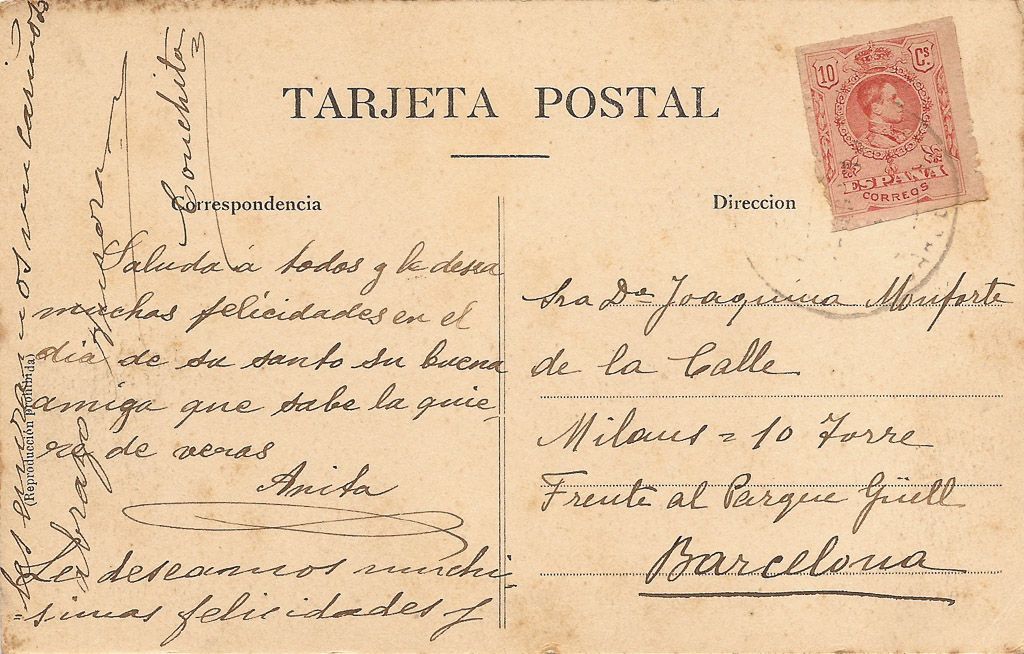 TARJETA POSTAL
10 Cs.
ESPAÑA
CORREOS
Correspondencia
Direccion
Saluda á todos y le desea
muchas felicidades en el
dia de su santo su buena
amiga que sabe la quie-
re de veras
Anita
Le deseamos muchi-
simas felicidades y
las enviamos un cariñoso
abrazo
Conchita
(Reproducción prohibida)
Sra Dª Joaquina Monforte
de la Calle
Milans = 10 Torre
Frente al Parque Güell
Barcelona